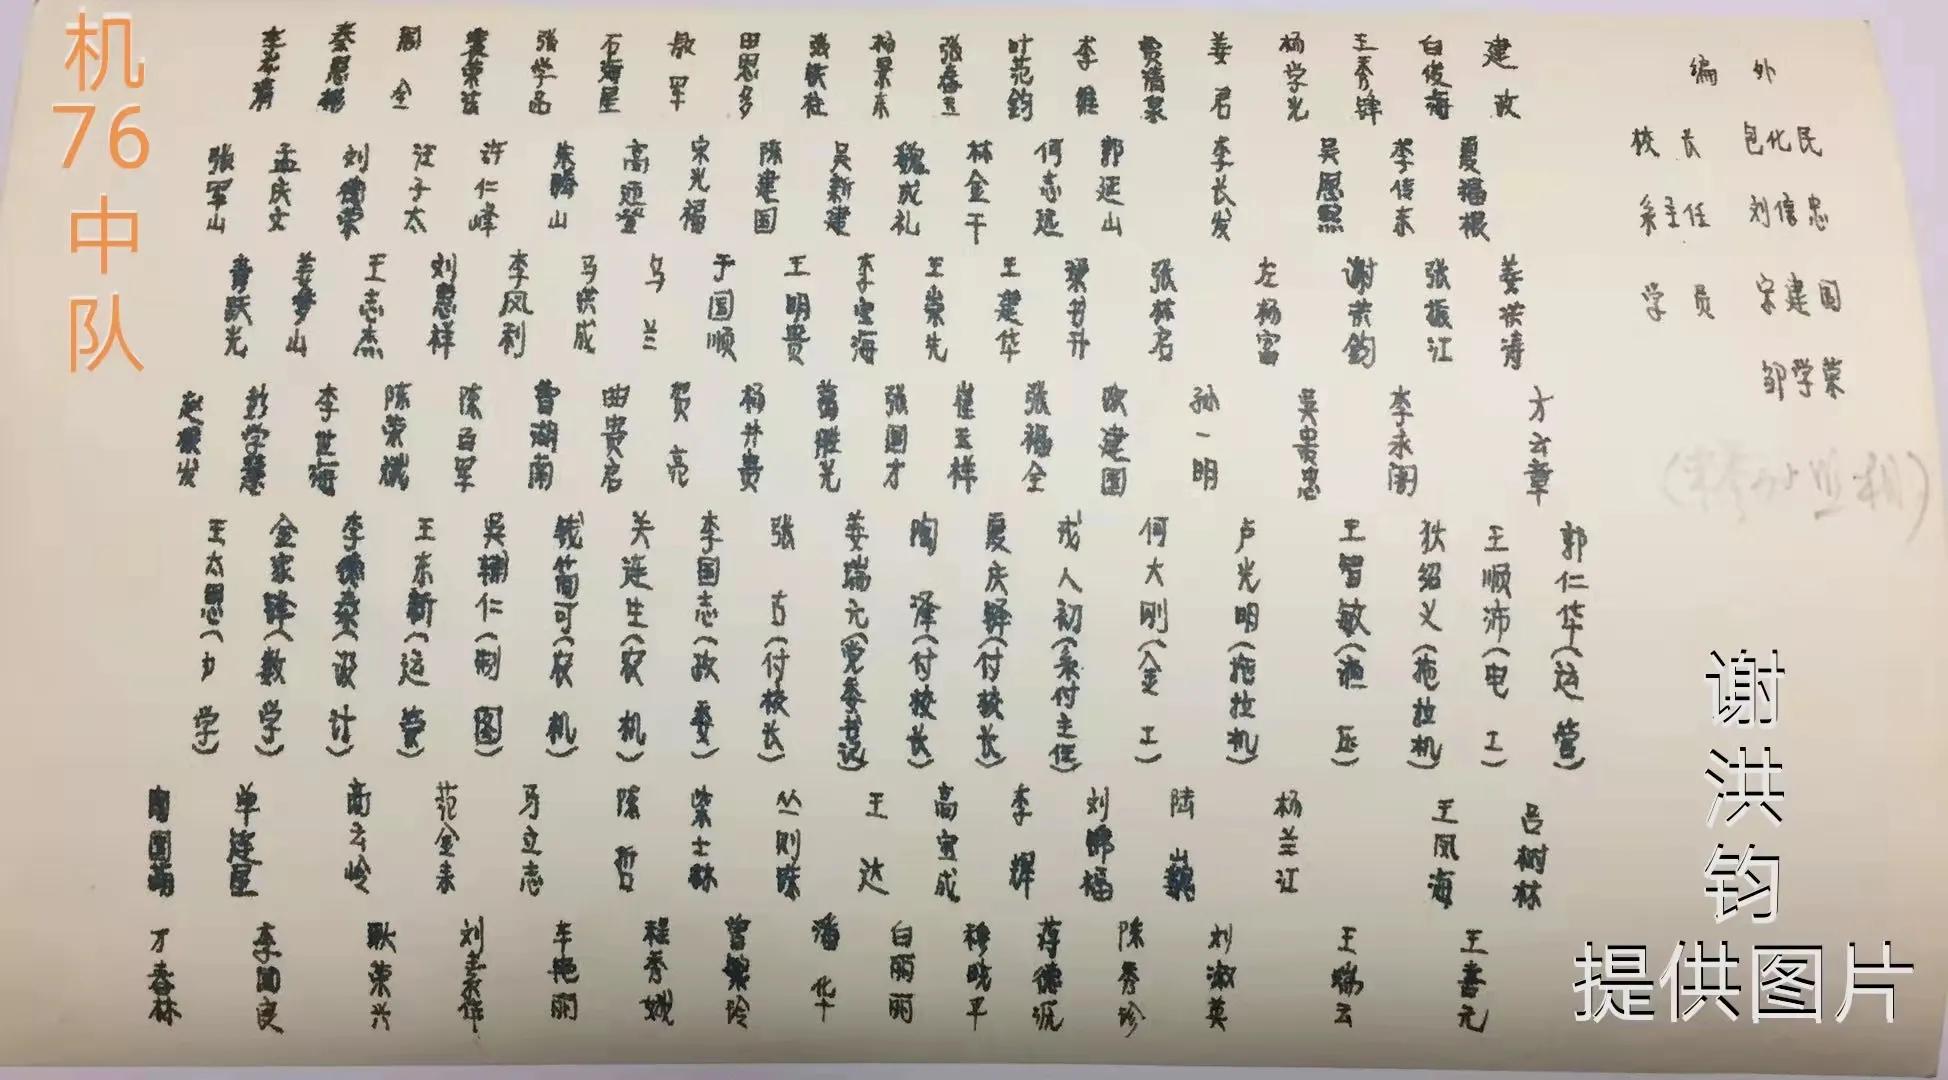 机76中队
李 秦恩 周全 荣 张学 石海星 敖军 田思多 张跃社 杨景东 张春玉 叶范钧 李维 贾清泉 姜君 杨学光 王秀锋 白俊海 建政
张军山 孟庆文 刘德荣 汪子太 许仁峰 朱腾山 高 宋光福 陈建国 吴新建 魏成礼 林金干 何志远 郭延山 李长发 吴恩熙 李传东 夏福根
青跃光 姜梦山 王志杰 刘惠祥 李风利 马洪成 乌兰 于国顺 王明贵 李宝海 王崇先 王建华 梁书升 张林名 左杨富 谢洪钧 张振江 姜洪涛
赵振发 彭学慧 李世海 陈荣斌 陈百军 曹湖南 曲贵启 贺亮 杨升贵 葛胜光 张国才 崔玉祥 张福全 欧建国 孙一明 吴贵忠 李永阁 才云章
王太恩(力学) 金家锋(数学) 李德桑(设计) 王东新(运管) 吴辅仁(制图) 钱简可(农机) 关连生(农机) 李国志(政委) 张古(付校长) 姜瑞元(党委书记) 陶泽(付校长) 夏庆铎(付校长) 戎人初(系付主任) 何大刚(金工) 卢光明(拖拉机) 王智敏(液压) 狄绍义(拖拉机) 王顺沛(电工) 郭仁华(运管)
国 单连星 高云岭 范金来 马立志 陈哲 柴士林 丛则陈 王达 高宝成 李辉 刘锦福 陆巍 杨兰江 王凤海 吕树林
才春林 李国良 耿荣兴 刘 车艳丽 程秀娥 曾繁玲 潘华 白丽丽 穆晓平 蒋德沅 陈秀珍 刘淑英 王云 王喜元
编外
校长 包化民
系主任 刘信忠
学员 宋建国
邹学荣
谢洪钧
提供图片